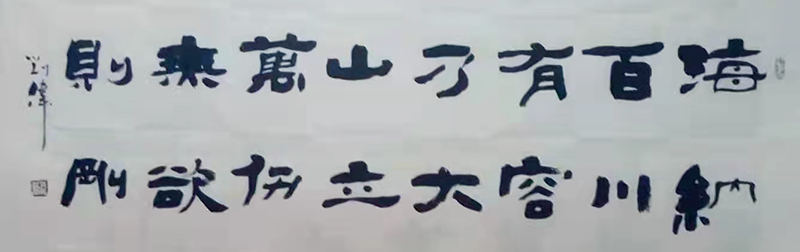 海納
百川
有容
乃大
山立
萬仞
無欲
則剛
刘偉